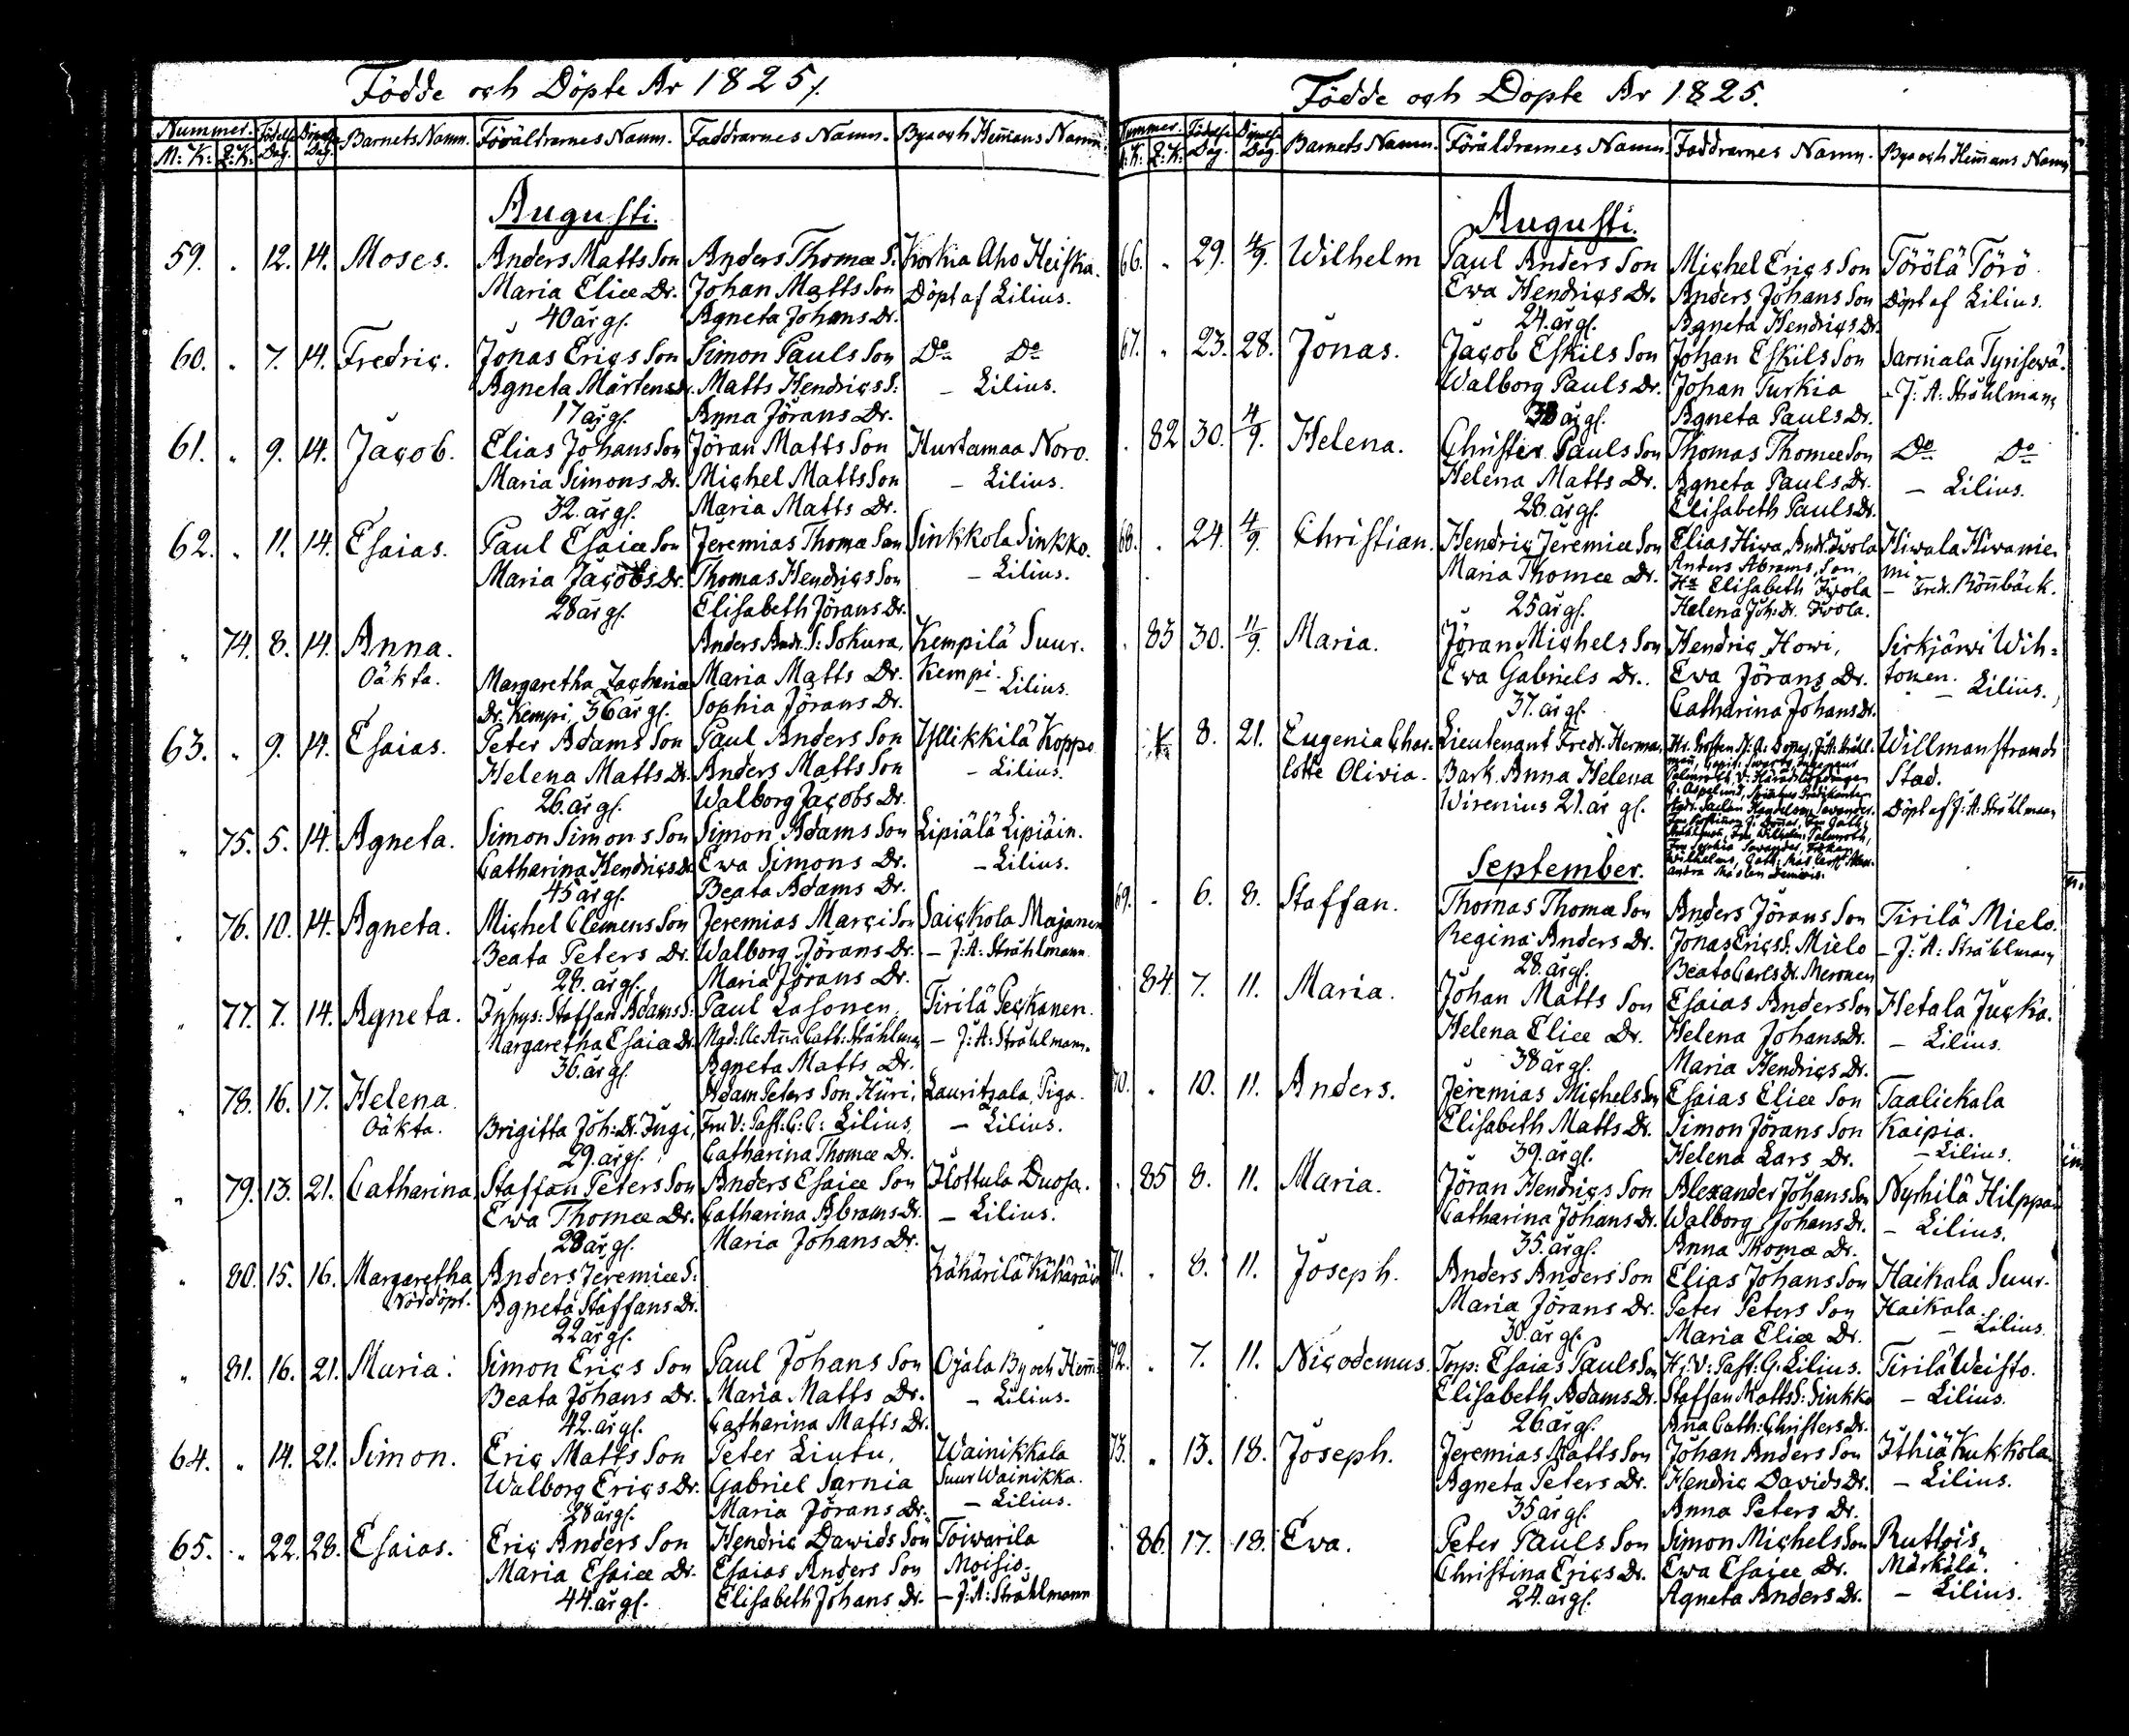 Födde och Döpte År 1825/.
Nummer. Födelse Dag. Döpelse Dag. Barnets Namn. Föräldrarnes Namn. Faddrarnes Namn. By och Hemans Namn
M: K: Q: K:
Augusti.
59. " 12. 14. Moses. Anders Matts Son Anders Thomæ S: Korkia Aho Heiska.
Maria Eliæ Dr. Johan Matts Son Döpt af Lilius.
40 år gl. Agneta Johans Dr.
60. " 7. 14. Fredric. Jonas Erics Son Simon Pauls Son Do Do
Agneta Mårtens Dr. Matts Hendrics S: – Lilius.
17 år gl. Anna Jörans Dr.
61. " 9. 14. Jacob. Elias Johans Son Jöran Matts Son Hurtamaa Noro.
Maria Simons Dr. Michel Matts Son – Lilius.
32. år gl. Maria Matts Dr.
62. " 11. 14. Esaias. Paul Esaiæ Son Jeremias Thomæ Son Sinkkola Sinkko.
Maria Jacobs Dr. Thomas Hendrics Son – Lilius.
28 år gl. Elisabeth Jörans Dr.
" 74. 8. 14. Anna. Anders Andr. S: Sokura, Kempilä Suur.
Oäkta. Margaretha Zachariæ Maria Matts Dr. Kempi.
Dr. Kempi, 36 år gl. Sophia Jörans Dr. – Lilius.
63. " 9. 14. Esaias. Peter Adams Son Paul Anders Son Yllikkilä Koppo
Helena Matts Dr. Anders Matts Son – Lilius.
26. år gl. Walborg Jacobs Dr.
" 75. 5. 14. Agneta. Simon Simons Son Simon Adams Son Lipiälä Lipiäin.
Catharina Hendrics Dr. Ewa Simons Dr. – Lilius.
45 år gl. Beata Adams Dr.
" 76. 10. 14. Agneta. Michel Clemens Son Jeremias Marci Son Saickola Majanen
Beata Peters Dr. Walborg Jörans Dr. – J: A: Stråhlmann
28. år gl. Maria Jörans Dr.
" 77. 7. 14. Agneta. Inhys: Staffan Adams S: Paul Lasonen, Tirilä Peckanen.
Margaretha Esaiæ Dr. Mad:lle Anna Cath: Stråhlman – J: A: Stråhlmann.
36. år gl. Agneta Matts Dr.
" 78. 16. 17. Helena. Adam Peters Son Hüri, Lauritsala, Piga.
Oäkta. Brigitta Joh: Dr. Jugi, Fru V: Past: G: G: Lilius, – Lilius.
29. år gl. Catharina Thomæ Dr.
" 79. 13. 21. Catharina Staffan Peters Son Anders Esaiæ Son Hottula Duosa.
Ewa Thomæ Dr. Catharina Abrams Dr. – Lilius.
28 år gl. Maria Johans Dr.
" 80. 15. 16. Margaretha Anders Jeremiæ S: Kähärilä Kähäräin
Nöddöpt. Agneta Staffans Dr.
22 år gl.
" 81. 16. 21. Maria. Simon Erics Son Paul Johans Son Ojala By och Hem:
Beata Johans Dr. Maria Matts Dr. – Lilius.
42. år gl. Catharina Matts Dr.
64. " 14. 21. Simon. Eric Matts Son Peter Liutu, Wainikkala
Walborg Erics Dr. Gabriel Sarnia Suur Wainikka.
28 år gl. Maria Jörans Dr. – Lilius.
65. " 22. 28. Esaias. Eric Anders Son Hendric Davids Son Toiwarila
Maria Esaiæ Dr. Esaias Anders Son Moisio.
44. år gl. Elisabeth Johans Dr. – J: A: Stråhlmann
Födde och Döpte År 1825.
Nummer. Födelse Dag. Döpelse Dag. Barnets Namn. Föräldrarnes Namn. Faddrarnes Namn. By och Hemans Namn
M: K: Q: K:
Augusti.
66. " 29. 4/9. Wilhelm Paul Anders Son Michel Erics Son Törölä Törö.
Ewa Hendrics Dr. Anders Johans Son Döpt af Lilius.
24. år gl. Agneta Hendrics Dr.
67. " 23. 28. Jonas. Jacob Eskils Son Johan Eskils Son Sarniala
Walborg Pauls Dr. Johan Turkia – J: A: Stråhlmann
38 år gl. Agneta Pauls Dr.
82 30. 4/9. Helena. Christer Pauls Son Thomas Thomæ Son Do Do
Helena Matts Dr. Agneta Pauls Dr. – Lilius.
28. år gl. Elisabeth Pauls Dr.
68. " 24. 4/9. Christian. Hendric Jeremiæ Son Elias Hiwa, Andr. Iwola Hiwala Hiwanie-
Maria Thomæ Dr. Anders Abrams Son, mi
25 år gl. Ha Elisabeth Iwola – Fredr. Rönnbäck.
Helena Joh: Dr. Iwola.
83 30. 11/9. Maria. Jöran Michels Son Hendric Howi, Sirkjärwi Wih=
Ewa Gabriels Dr. Ewa Jörans Dr. tonen.
37. år gl. Catharina Johans Dr. – Lilius.
8. 21. Eugenia Char- Lieutenant Fredr. Herman Willmanstrands
lotte Olivia. Bark. Anna Helena Stad.
Wirenius 21. år gl. Döpt af J: A: Stråhlmann
September.
69. " 6. 8. Staffan. Thomas Thomæ Son Anders Jörans Son Tirilä Mielo.
Regina Anders Dr. Jonas Erics S: Mielo – J: A: Stråhlmann
28. år gl. Beata Carls Dr. Meronen
84. 7. 11. Maria. Johan Matts Son Esaias Anders Son Hetala Jucka.
Helena Eliæ Dr. Helena Johans Dr. – Lilius.
38 år gl. Maria Hendrics Dr.
70. " 10. 11. Anders. Jeremias Michels Son Esaias Eliæ Son Taalickala
Elisabeth Matts Dr. Simon Jörans Son Kaipia.
39. år gl. Helena Lars Dr. – Lilius.
85 8. 11. Maria. Jöran Hendrics Son Alexander Johans Son Nyrhilä Hilppan
Catharina Johans Dr. Walborg Johans Dr. – Lilius.
35. år gl. Anna Thomæ Dr.
71. " 8. 11. Joseph. Anders Anders Son Elias Johans Son Haikala Suur-
Maria Jörans Dr. Peter Peters Son Haikala.
30. år gl. Maria Eliæ Dr. – Lilius.
72. " 7. 11. Nicodemus. Torp: Esaias Pauls Son Hr: V: Past: G: Lilius. Tirilä Weisto.
Elisabeth Adams Dr. Staffan Matts S: Sinkko – Lilius.
26. år gl. Anna Cath: Christers Dr.
73. " 13. 18. Joseph. Jeremias Matts Son Johan Anders Son Ithiä Kukkola.
Agneta Peters Dr. Hendric Davids Dr. – Lilius.
35 år gl. Anna Peters Dr.
86. 17. 18. Ewa. Peter Pauls Son Simon Michels Son Ruttois,
Christina Erics Dr. Ewa Esaiæ Dr. Märkälä.
24. år gl. Agneta Anders Dr. – Lilius.